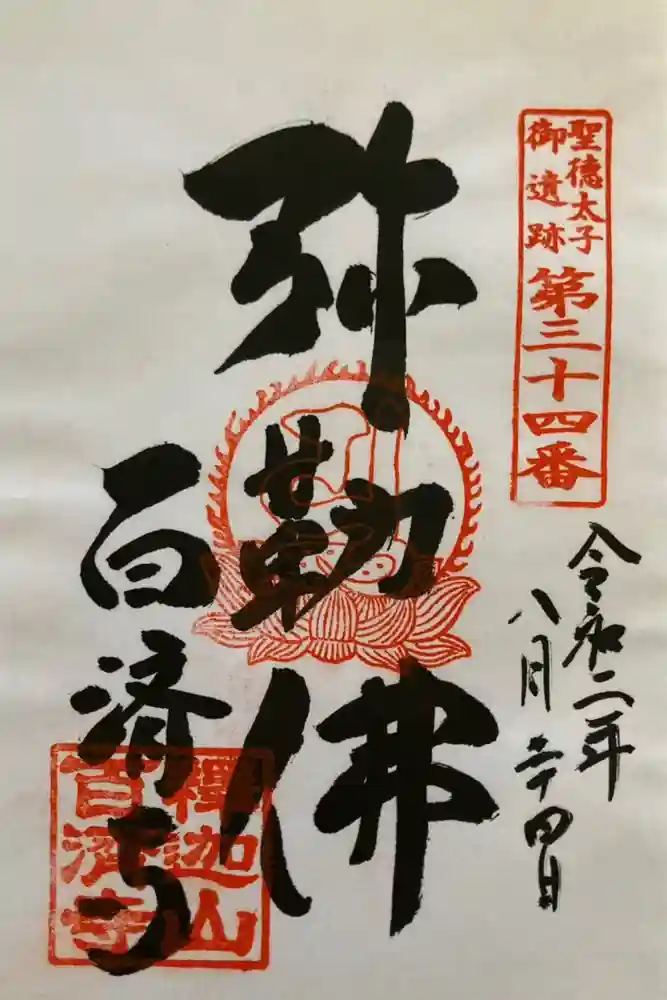 聖徳太子
御遺跡
第三十四番
令和二年
八月二十四日
弥勒佛
百済寺
釋迦山
百濟寺